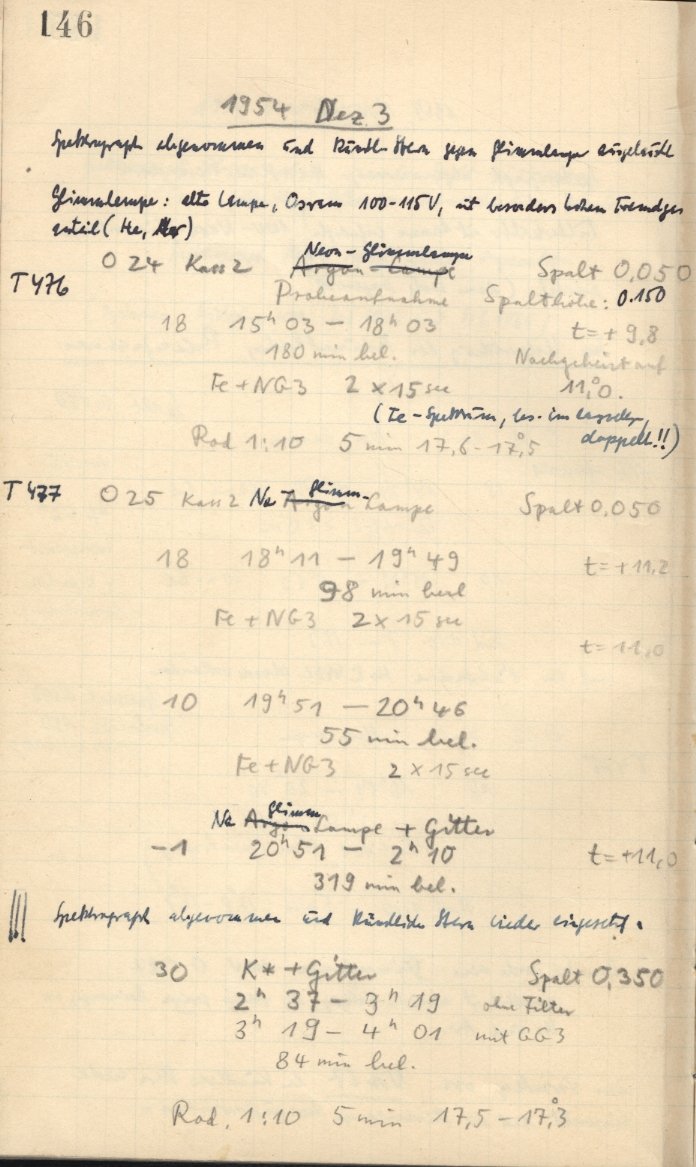 146
1954 Dez 3
Spektrograph abgenommen und künstl. Stern gegen Glimmlampe ausgetauscht
Glimmlampe: alte Lampe, Osram 100-115V, mit besonders hohem Fremdgas
anteil (He,
Neon-Glimmlampe
O 24 Kass 2 Argon-Lampe Spalt 0,050
T 476 Probeaufnahme Spalthöhe: 0.150
18 15h 03 - 18h 03 t = + 9,8
180 min bel. Nachgeheizt auf
Fe + NG3 2 x 15 sec 11,°0.
(Fe-Spektrum, bes. im
Rod 1:10 5 min 17,6 - 17,°5 doppelt!!)
Glimm-
T 477 O 25 Kass 2 Ne Argon Lampe Spalt 0,050
18 18h 11 - 19h 49 t = + 11,2
98 min bel
Fe + NG3 2 x 15 sec
t = 11,0
10 19h 51 - 20h 46
55 min bel.
Fe + NG3 2 x 15 sec
Glimm
Ne Argon Lampe + Gitter
-1 20h 51 - 2h 10 t = +11,0
319 min bel.
Spektrograph abgenommen und künstlichen Stern wieder eingesetzt.
30 K* + Gitter Spalt 0,350
2h 37 - 3h 19 ohne Filter
3h 19 - 4h 01 mit GG3
84 min bel.
Rod. 1:10 5 min 17,5 - 17,°3